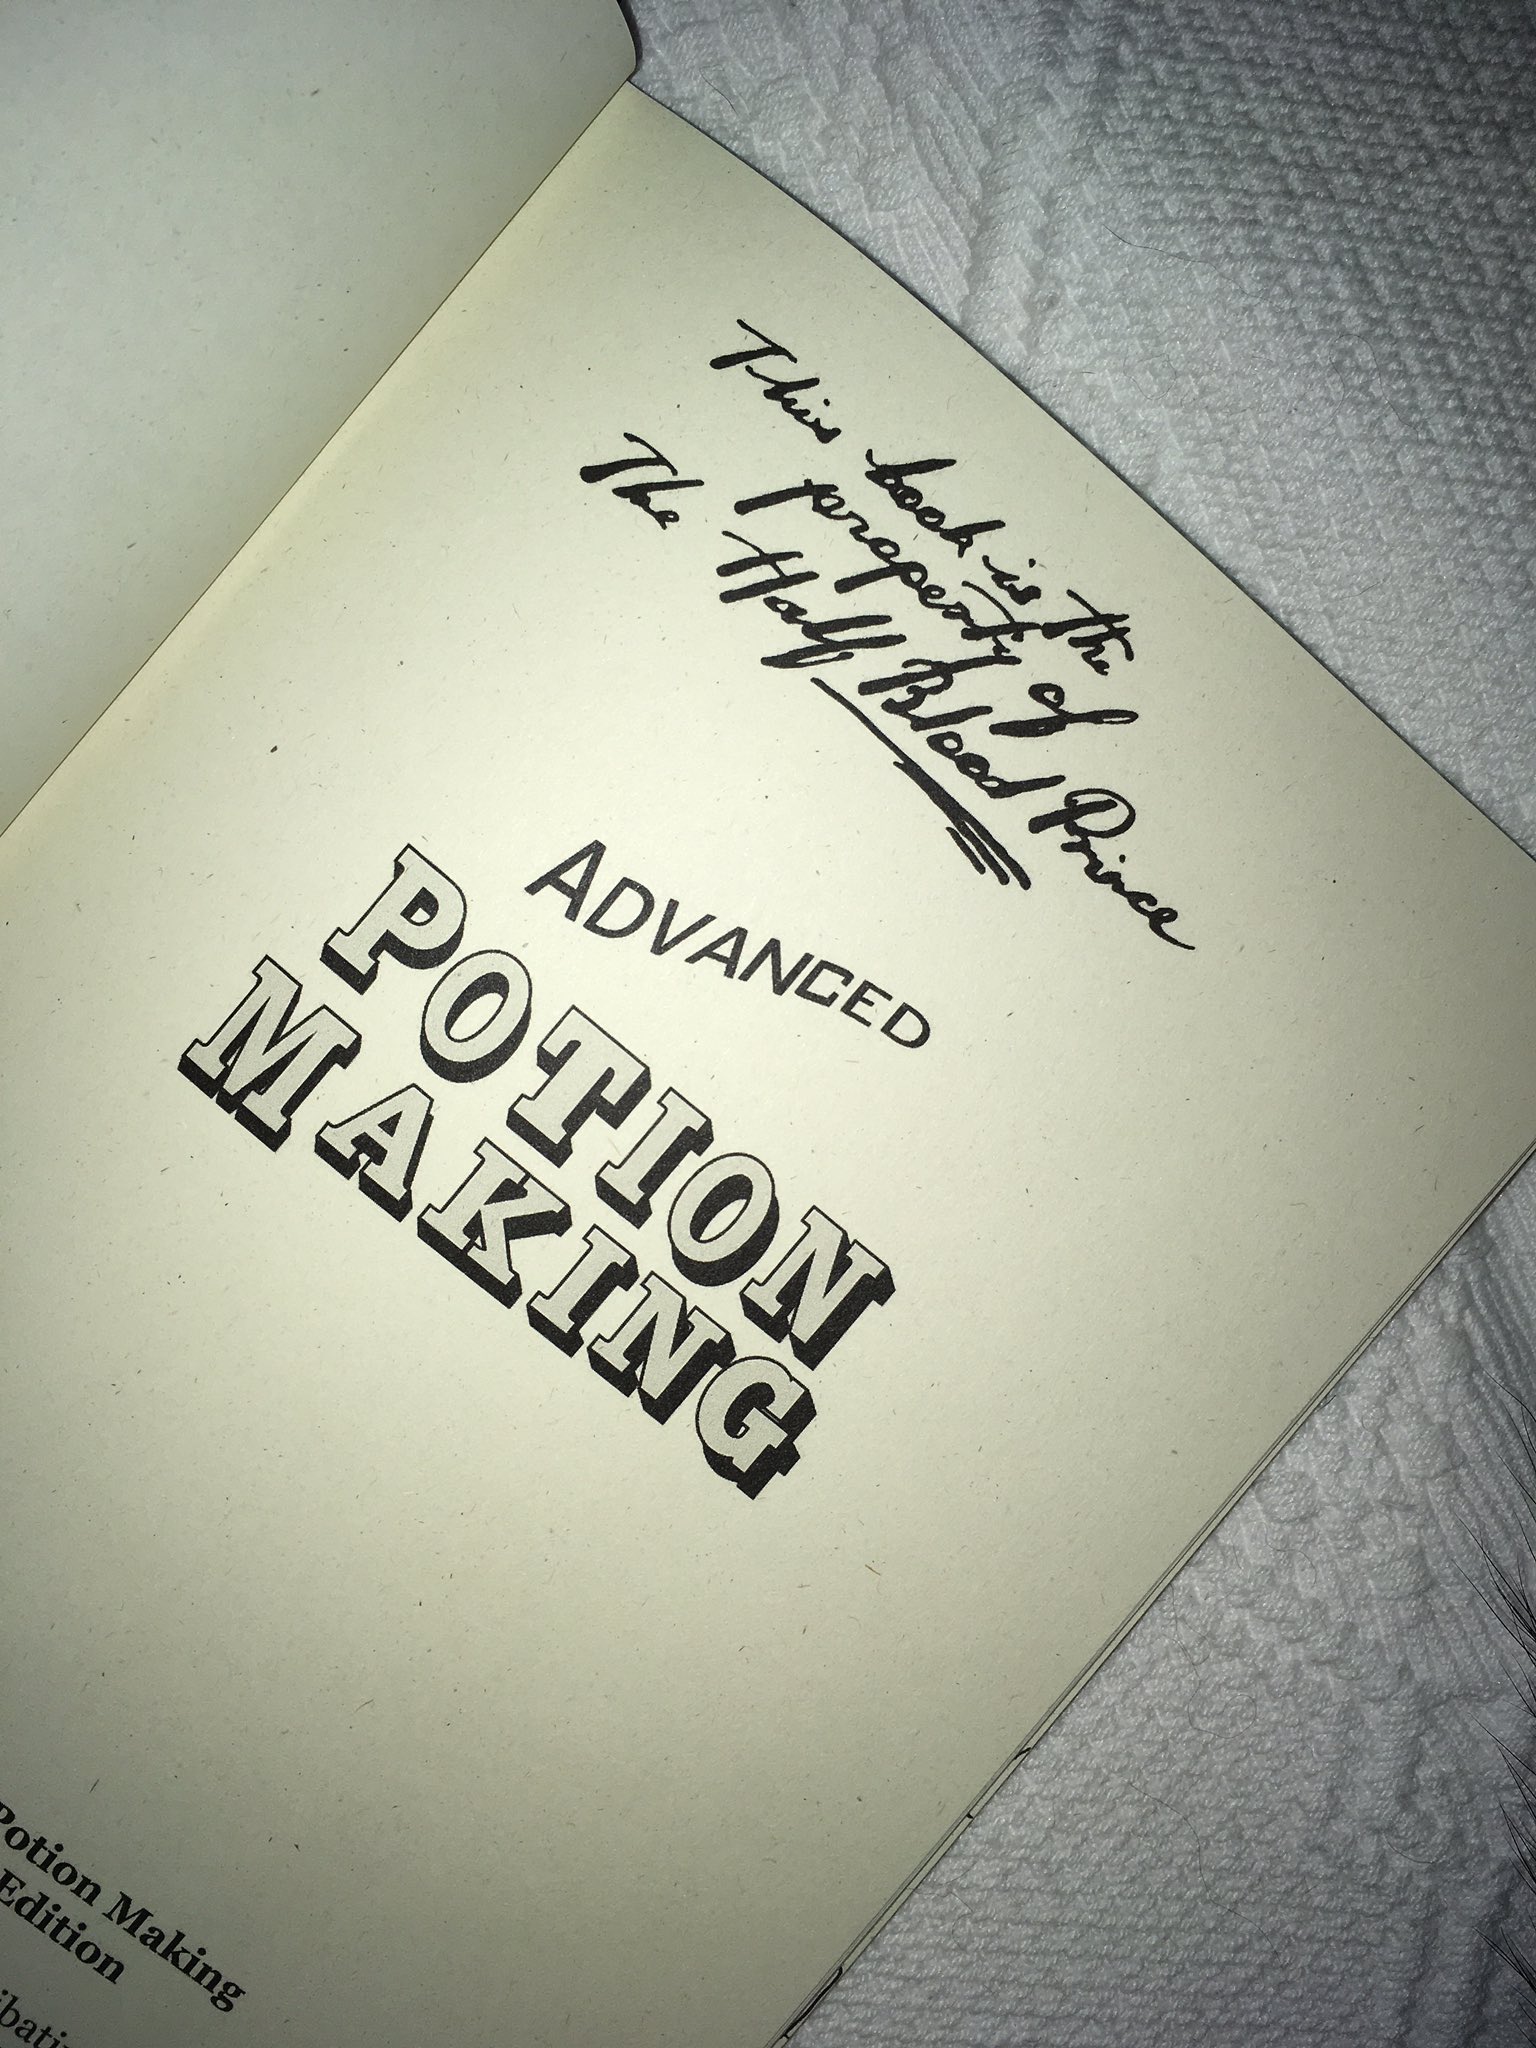 This book is the
property of
The Half Blood Prince
ADVANCED
POTION
MAKING
Potion Making
Edition